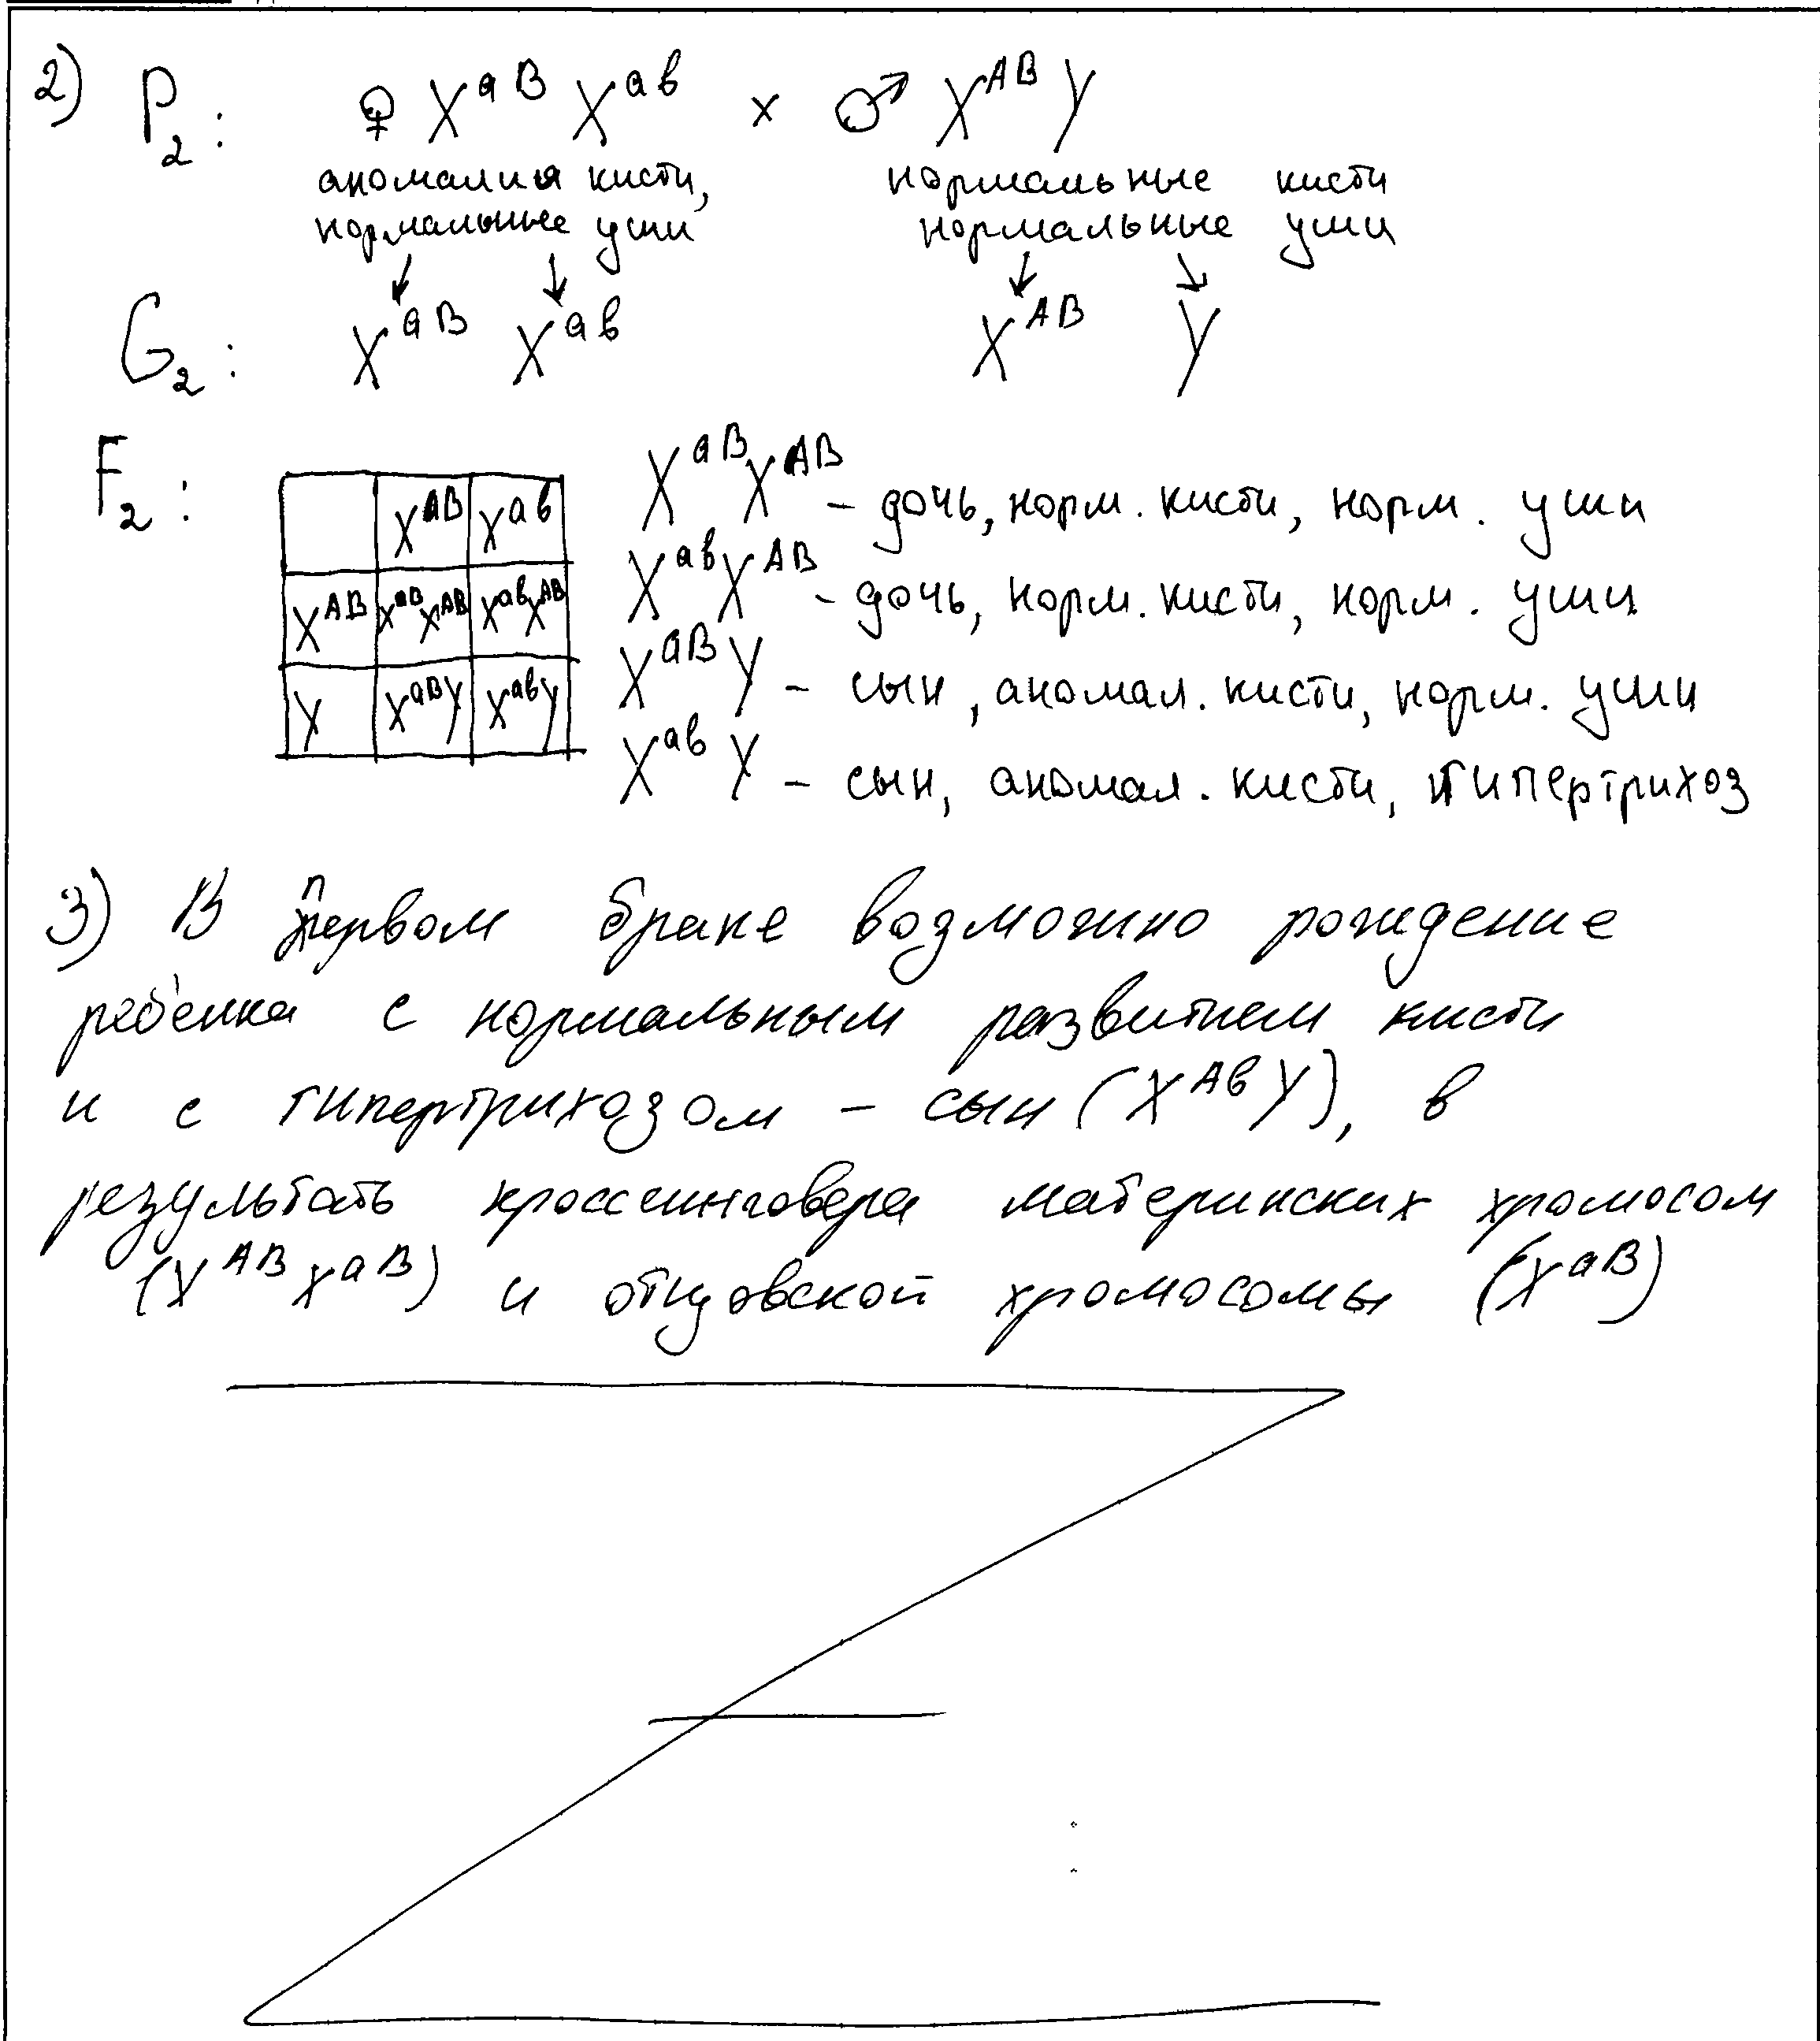 2) P₂: ♀ Xᵃᴮ Xᵃᵇ × ♂ Xᴬᴮ Y
аномалия кисти, нормальные кисти
нормальные уши нормальные уши
↓ ↓ ↓ ↓
G₂: Xᵃᴮ Xᵃᵇ Xᴬᴮ Y
F₂:
Xᴬᴮ Xᵃᵇ
Xᴬᴮ XᵃᴮXᴬᴮ XᵃᵇXᴬᴮ
Y XᵃᴮY XᵃᵇY
XᵃᴮXᴬᴮ – дочь, норм. кисти, норм. уши
XᵃᵇXᴬᴮ – дочь, норм. кисти, норм. уши
XᵃᴮY – сын, аномал. кисти, норм. уши
XᵃᵇY – сын, аномал. кисти, гипертрихоз
3) В первом браке возможно рождение
ребенка с нормальным развитием кисти
и с гипертрихозом – сын (XᴬᵇY), в
результать кроссинговера материнских хромосом
(Xᴬᴮ Xᵃᴮ) и отцовской хромосомы (Xᵃᴮ)